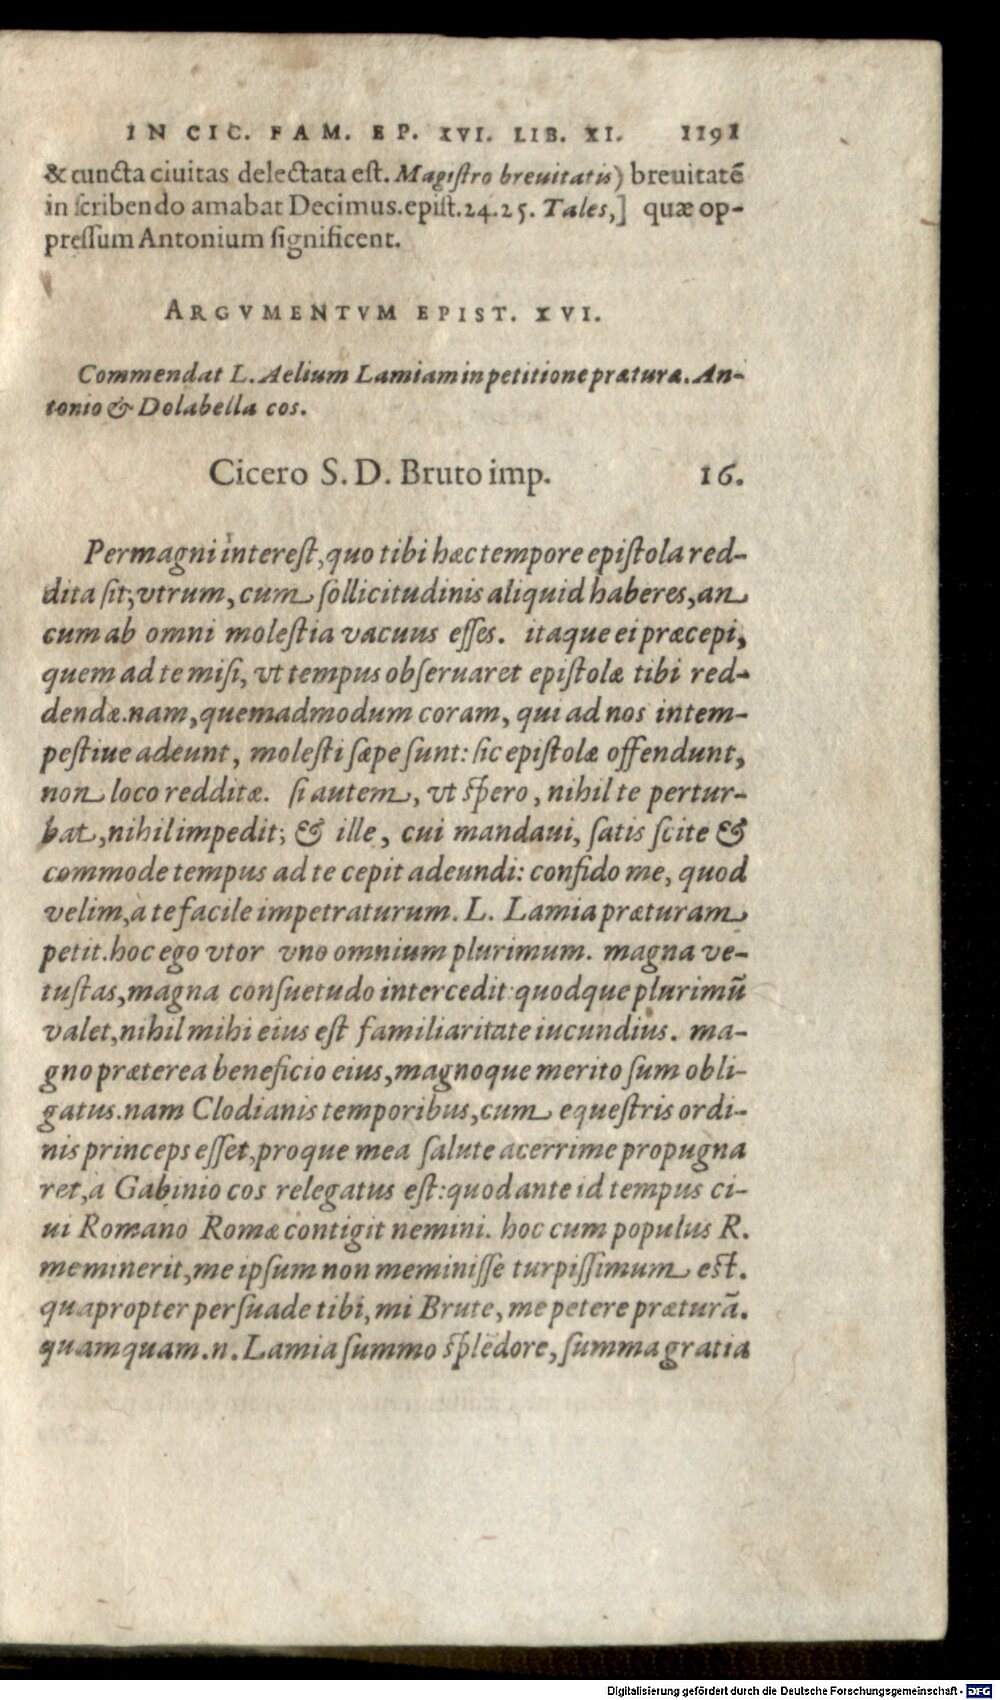 IN CIC. FAM. EP. XVI. LIB. XI. 1191
& cuncta ciuitas delectata est. Magistro breuitatis) breuitatē
in scribendo amabat Decimus.epist.24.25. Tales,] quæ op-
pressum Antonium significent.
ARGVMENTVM EPIST. XVI.
Commendat L. Aelium Lamiam in petitione præturæ. An-
tonio & Dolabella cos.
Cicero S. D. Bruto imp. 16.
Permagni interest, quo tibi hæc tempore epistola red-
dita sit; vtrum, cum sollicitudinis aliquid haberes, an
cum ab omni molestia vacuus esses. itaque ei præcepi,
quem ad te misi, vt tempus obseruaret epistolæ tibi red-
dendæ. nam, quemadmodum coram, qui ad nos intem-
pestiue adeunt, molesti sæpe sunt: sic epistolæ offendunt,
non loco redditæ. si autem, vt spero, nihil te pertur-
bat, nihil impedit; & ille, cui mandaui, satis scite &
commode tempus ad te cepit adeundi: confido me, quod
velim, à te facile impetraturum. L. Lamia præturam
petit. hoc ego vtor vno omnium plurimum. magna ve-
tustas, magna consuetudo intercedit: quodque plurimū
valet, nihil mihi eius est familiaritate iucundius. ma-
gno præterea beneficio eius, magnoque merito sum obli-
gatus. nam Clodianis temporibus, cum equestris ordi-
nis princeps esset, proque mea salute acerrime propugna
ret, à Gabinio cos relegatus est: quod ante id tempus ci-
ui Romano Romæ contigit nemini. hoc cum populus R.
meminerit, me ipsum non meminisse turpissimum est.
quapropter persuade tibi, mi Brute, me petere præturā.
quamquam.n. Lamia summo splēdore, summa gratia
Digitalisierung gefördert durch die Deutsche Forschungsgemeinschaft - DFG